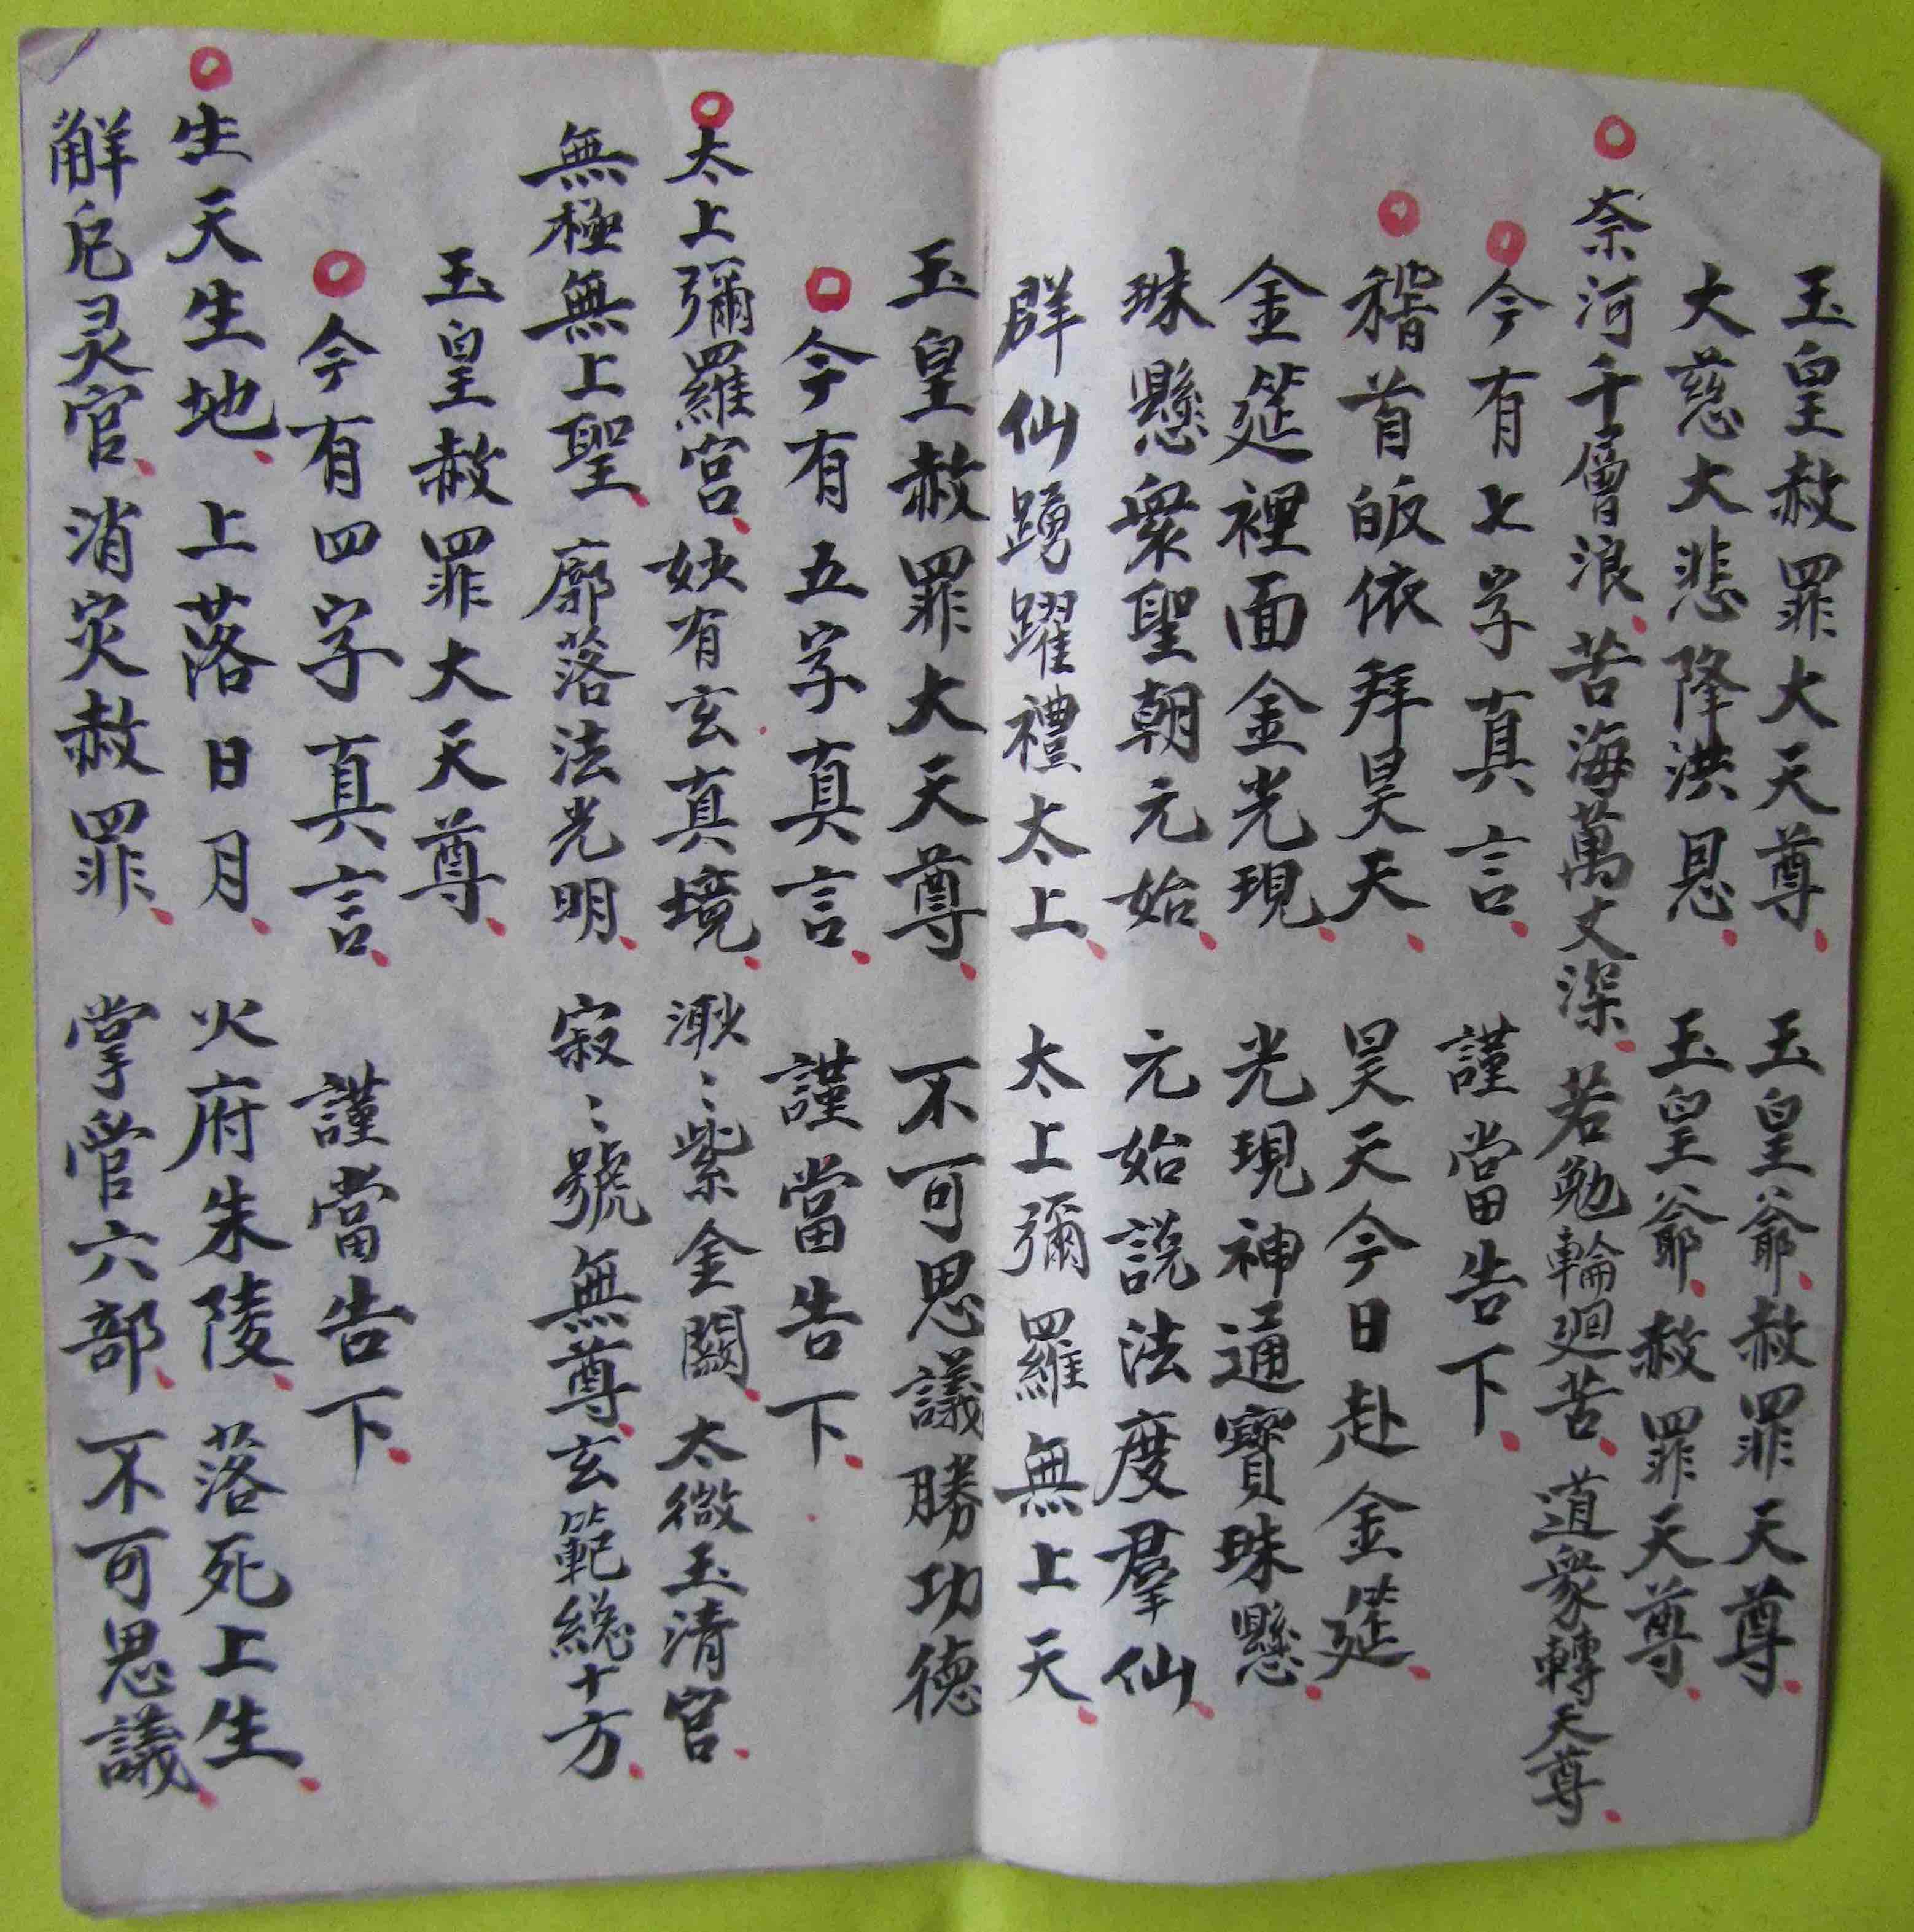 玉皇赦罪大天尊、玉皇爺、赦罪天尊、
大慈大悲降洪恩、玉皇爺、赦罪天尊、
○奈河千層浪、苦海萬丈深、若勉輪廻苦、道衆轉天尊、
○今有七字真言、謹當告下、
○稽首皈依拜昊天、昊天今日赴金筵、
金筵裡面金光現、光現神通寶珠懸、
珠懸衆聖朝元始、元始説法度羣仙、
群仙踴躍禮太上、太上彌羅無上天、
玉皇赦罪大天尊、不可思議勝功德
○今有五字真言、謹當告下、
○太上彌羅宫、妙有玄真境、渺〻紫金闕、太微玉清宫、
無極無上聖、廓落法光明、寂〻號無尊、玄範総十方、
玉皇赦罪大天尊、
○今有四字真言、謹當告下、
○生天生地、上落日月、火府朱陵、落死上生、
解厄灵官、消灾赦罪、掌管六部、不可思議、